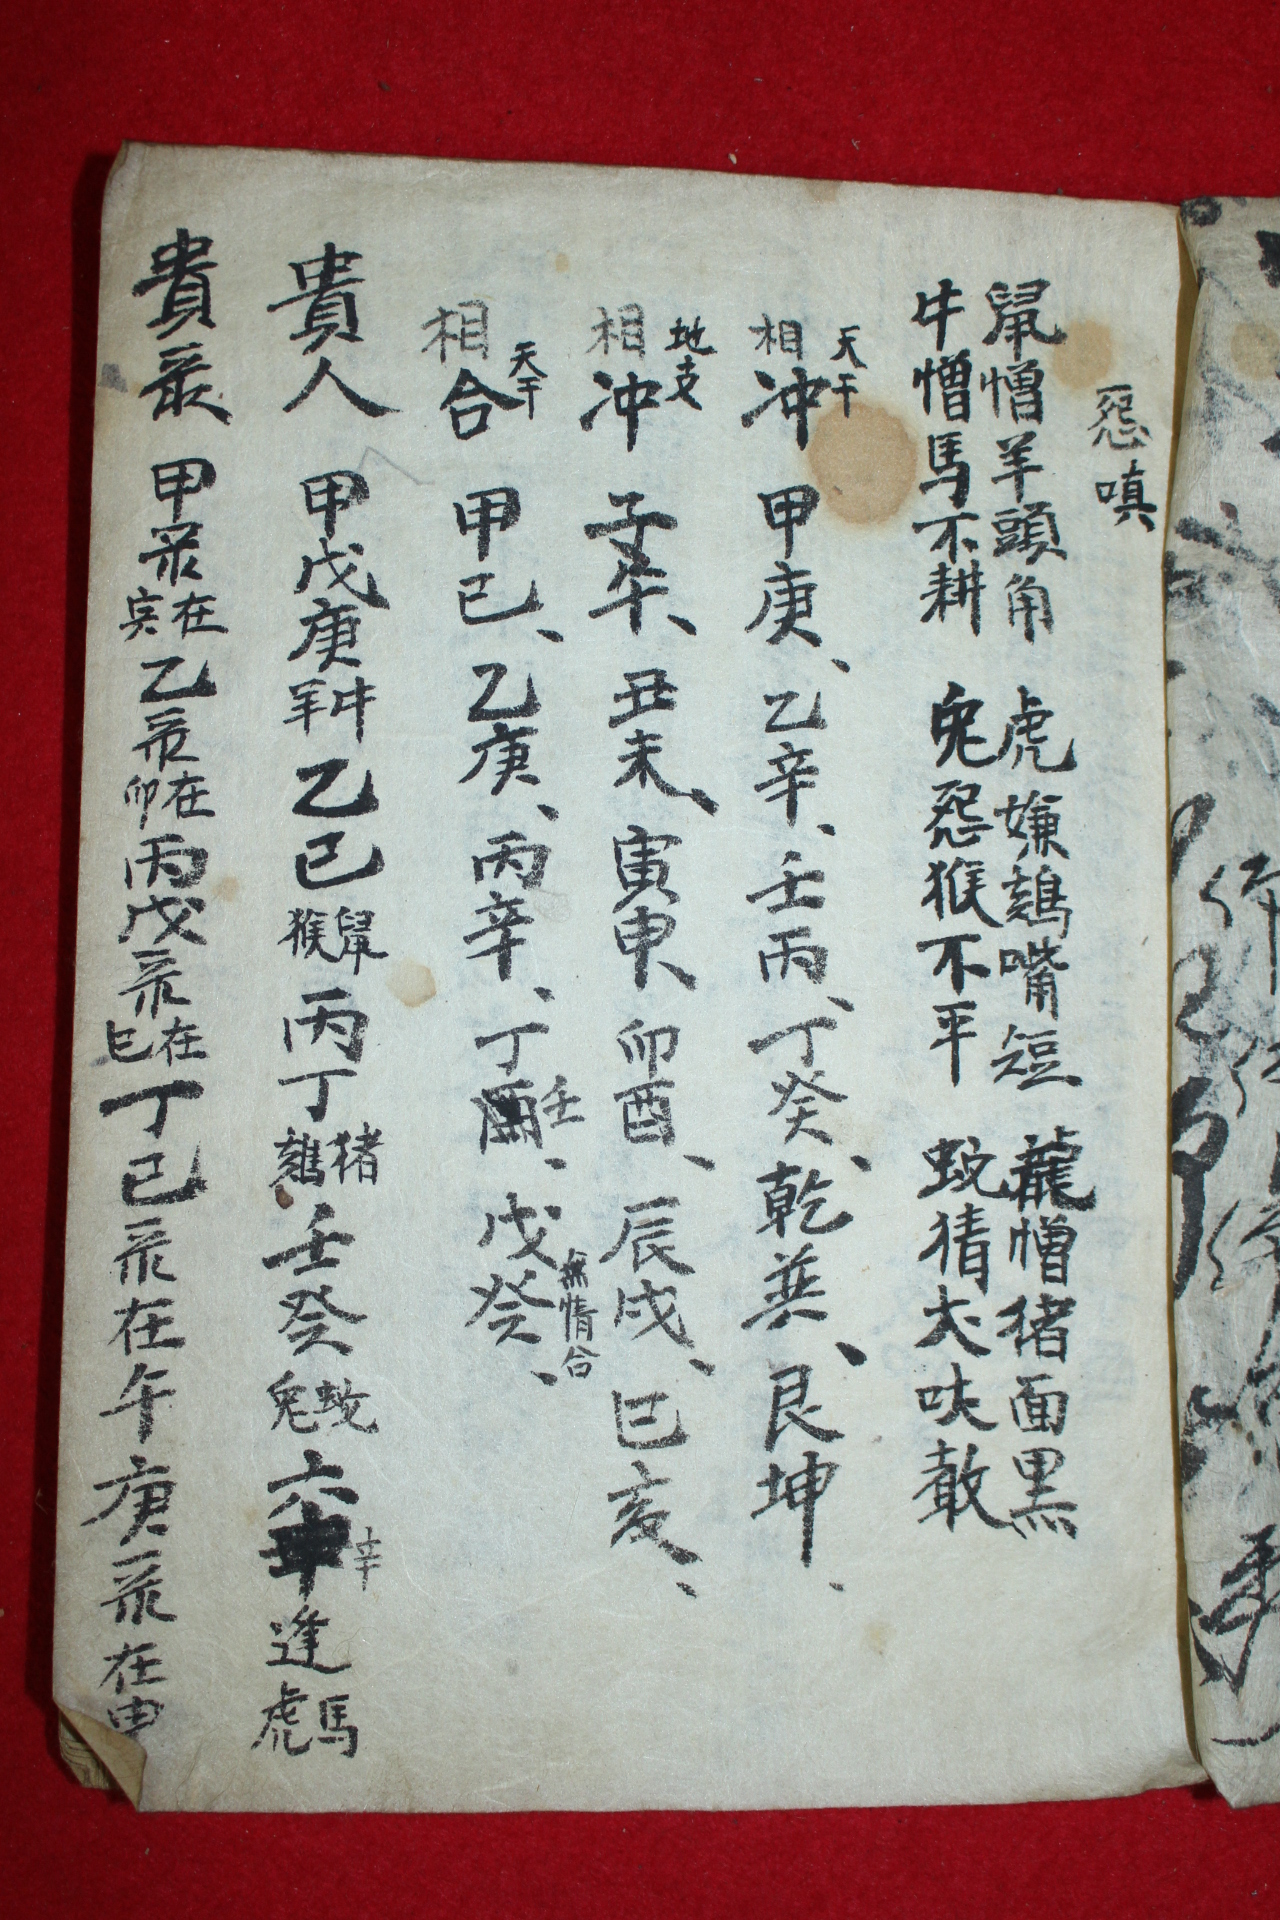 怨嗔
鼠憎羊頭角 虎嫌鷄嘴短 龍憎猪面黑
牛憎馬不耕 兔怨猴不平 蛇猜犬吠
天干
相冲 甲庚、乙辛、壬丙、丁癸、乾巽、艮坤、
地支
相冲 子午、丑未、寅申 卯酉、辰戌、巳亥、
天干
相合 甲己、乙庚、丙辛、丁壬、戊癸、
無情合
貴人 甲戊庚牛羊乙己鼠猴丙丁猪鷄壬癸蛇兔六辛逢馬虎
貴录 甲录在寅乙录在卯丙戊录在巳丁己录在午庚录在申